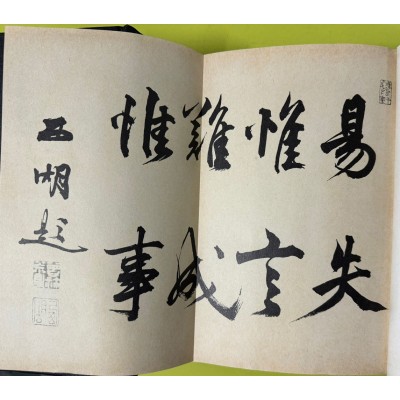 易失
惟言
難成
惟事
題